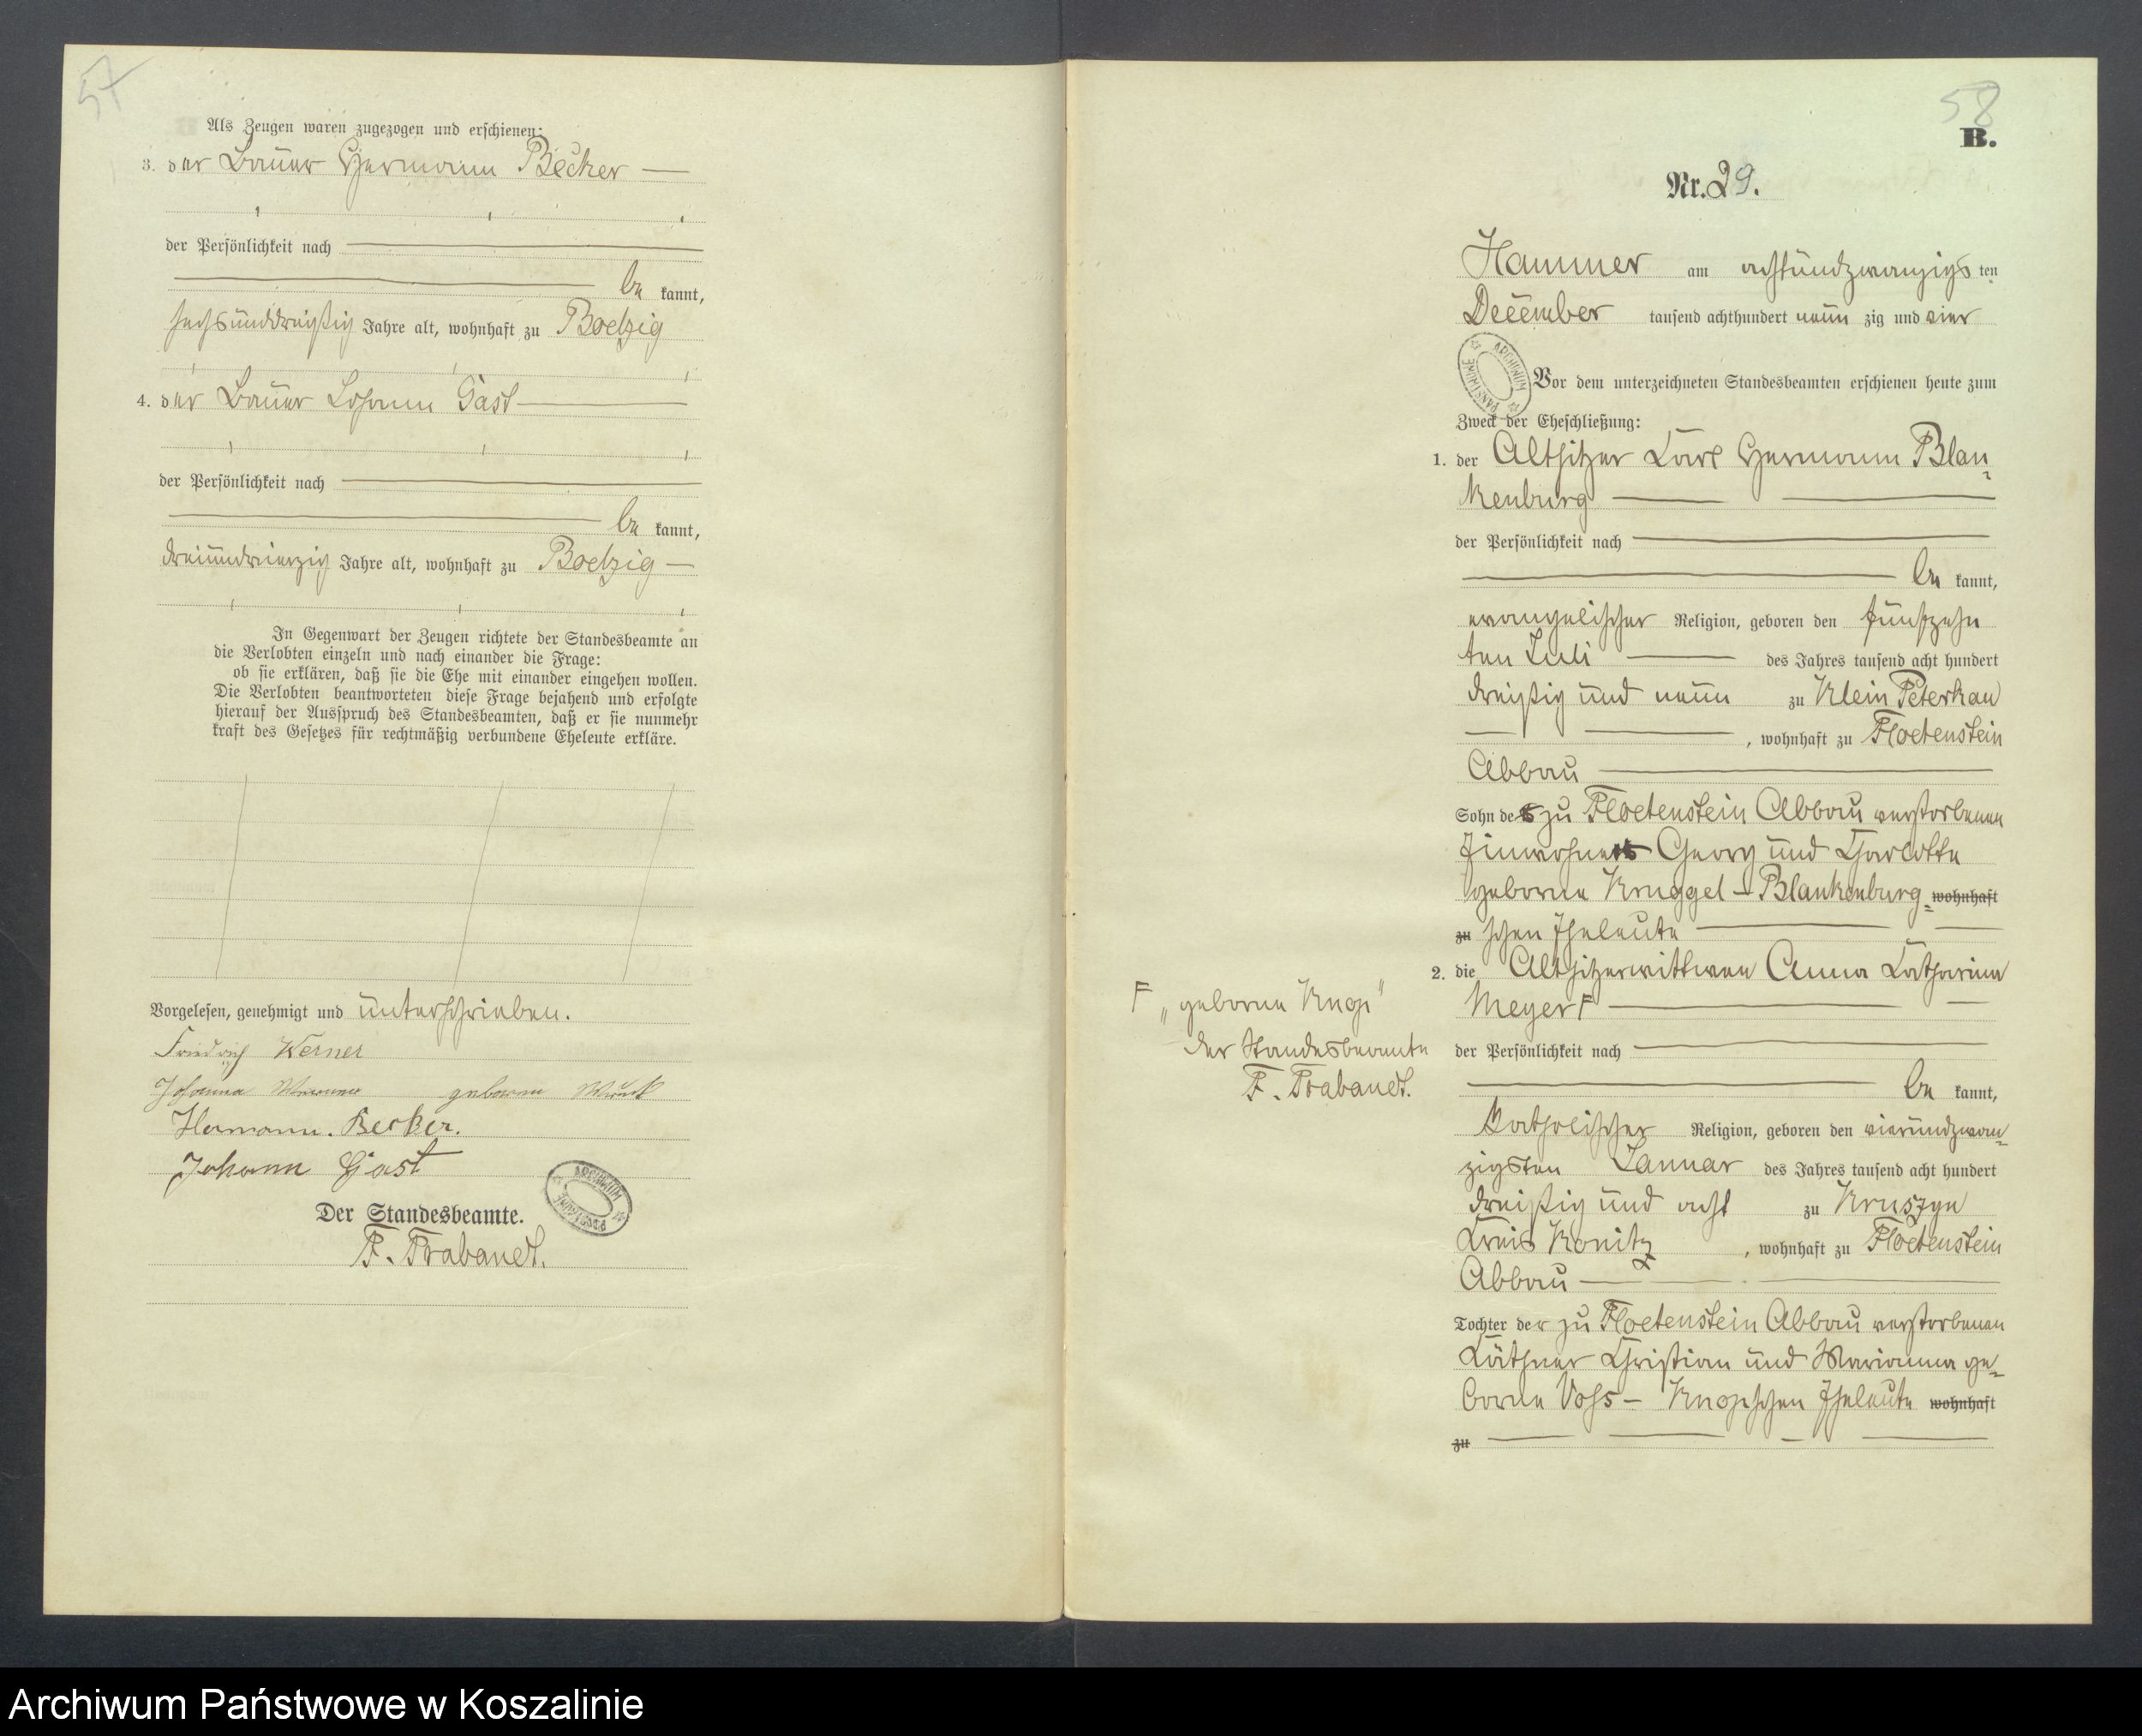 57
Als Zeugen waren zugezogen und erschienen:
3. der Bauer Hermann Becker
der Persönlichkeit nach
be kannt,
sechsunddreißig Jahre alt, wohnhaft zu Boelzig
4. der Bauer Johann Gast
der Persönlichkeit nach
be kannt,
dreiundvierzig Jahre alt, wohnhaft zu Boelzig
In Gegenwart der Zeugen richtete der Standesbeamte an
die Verlobten einzeln und nach einander die Frage:
ob sie erklären, daß sie die Ehe mit einander eingehen wollen.
Die Verlobten beantworteten diese Frage bejahend und erfolgte
hierauf der Ausspruch des Standesbeamten, daß er sie nunmehr
kraft des Gesetzes für rechtmäßig verbundene Eheleute erkläre.
Vorgelesen, genehmigt und unterschrieben.
Friedrich Werner
Johanna Werner geborne
Hermann. Becker.
Johann Gast
ARCHIWUM PAŃSTWOWE
Der Standesbeamte.
F. Trabandt.
58
B.
Nr. 29.
Hammer am achtundzwanzigs ten
December tausend achthundert neun zig und vier
ARCHIWUM PAŃSTWOWE
Vor dem unterzeichneten Standesbeamten erschienen heute zum
Zweck der Eheschließung:
1. der Altsitzer Carl Hermann Blan-
kenburg
der Persönlichkeit nach
be kannt,
evangelischer Religion, geboren den fünfzehn
ten Juli des Jahres tausend acht hundert
dreißig und neun zu Klein Peterkau
, wohnhaft zu Floetenstein
Abbau
Sohn der zu Floetenstein Abbau verstorbenen
Einwohner Georg und Charlotte
geborne Kruggel - Blankenburg- wohnhaft
zu schen Eheleute
2. die Altsitzerwittwe Anna Catharina
Meyer F
F „geborne Knop"
der Standesbeamte
F. Trabandt.
der Persönlichkeit nach
be kannt,
katholischer Religion, geboren den vierundzwan-
zigsten Januar des Jahres tausend acht hundert
dreißig und acht zu Kruszyn
Kreis Konitz , wohnhaft zu Floetenstein
Abbau
Tochter der zu Floetenstein Abbau verstorbenen
Käthner Christian und Marianna ge-
borne Voss - Knopschen Eheleute wohnhaft
zu
Archiwum Państwowe w Koszalinie